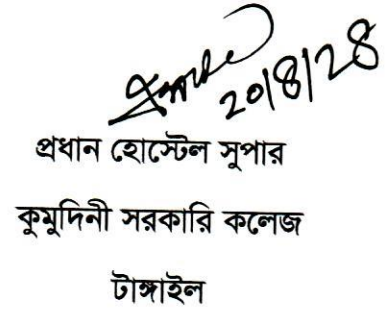 ২০|৪|২৪
প্রধান হোস্টেল সুপার
কুমুদিনী সরকারি কলেজ
টাঙ্গাইল